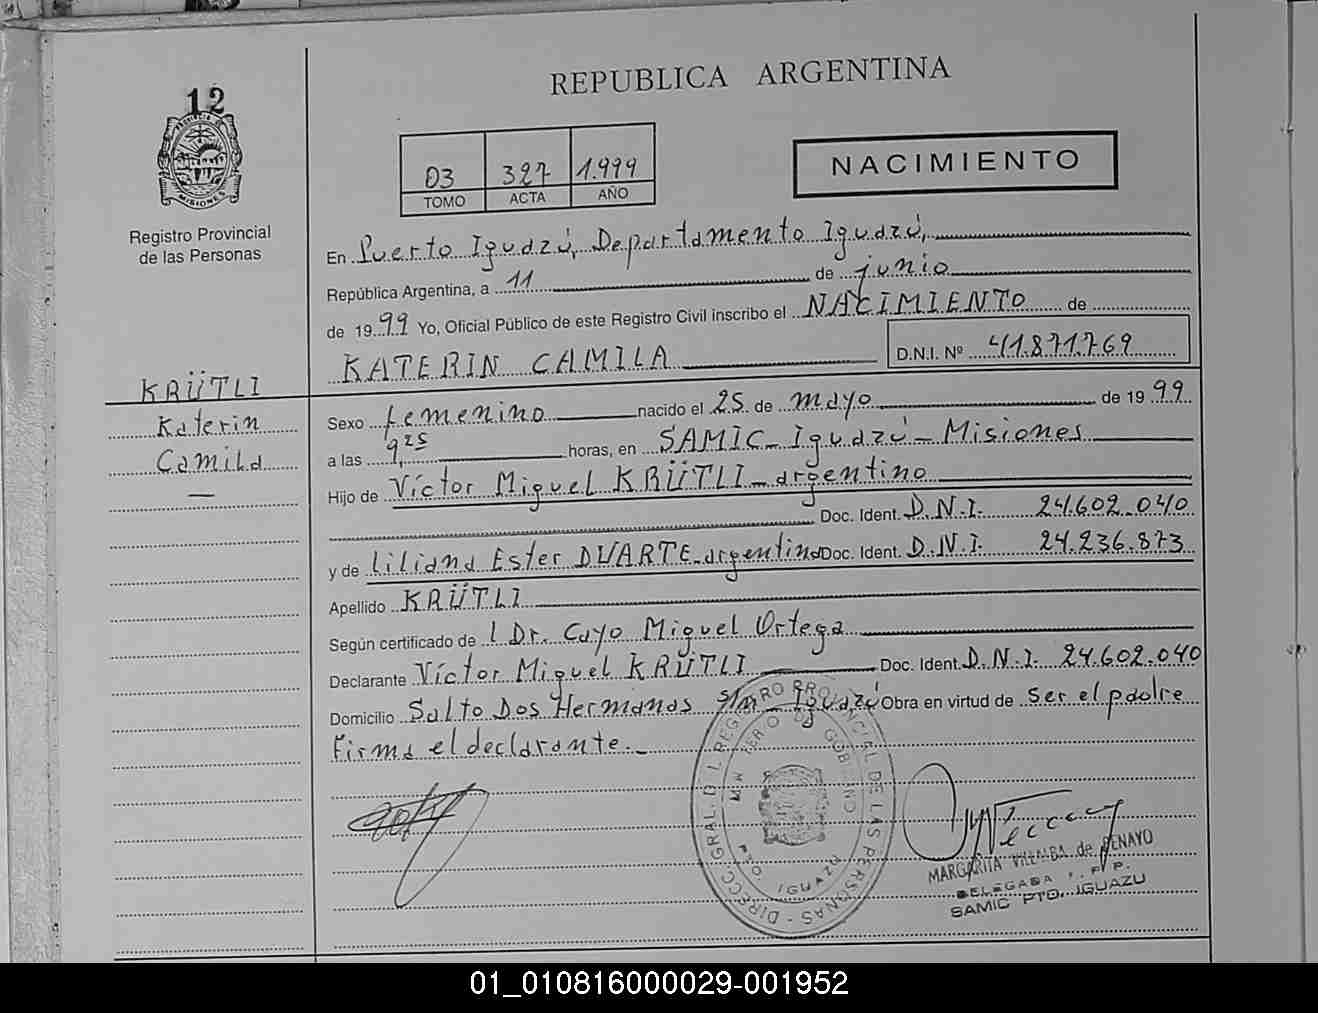 REPUBLICA ARGENTINA
12
PROVINCIA DE MISIONES
Registro Provincial
de las Personas
03 327 1.999
TOMO ACTA AÑO
NACIMIENTO
En Puerto Iguazú, Departamento Iguazú,
República Argentina, a 11 de junio
de 1999 Yo, Oficial Público de este Registro Civil inscribo el NACIMIENTO de
KATERIN CAMILA D.N.I. Nº 41.871.769
KRÜTLI
Katerin
Camila
Sexo femenino nacido el 25 de mayo de 1999
a las 9,25 horas, en SAMIC - Iguazú - Misiones
Hijo de Víctor Miguel KRÜTLI - argentino
Doc. Ident. D.N.I. 24.602.040
y de Liliana Ester DUARTE - argentina Doc. Ident. D.N.I. 24.236.873
Apellido KRÜTLI
Según certificado de l Dr. Cayo Miguel Ortega
Declarante Víctor Miguel KRÜTLI Doc. Ident. D.N.I. 24.602.040
Domicilio Salto Dos Hermanas s/n - Iguazú Obra en virtud de ser el padre
Firma el declarante. -
DIRECC. GRAL. DEL REGISTRO PROVINCIAL DE LAS PERSONAS
MINISTERIO DE GOBIERNO
PTO. IGUAZU
MARGARITA VILLALBA de PENAYO
DELEGADA
SAMIC PTO. IGUAZU
01_010816000029-001952